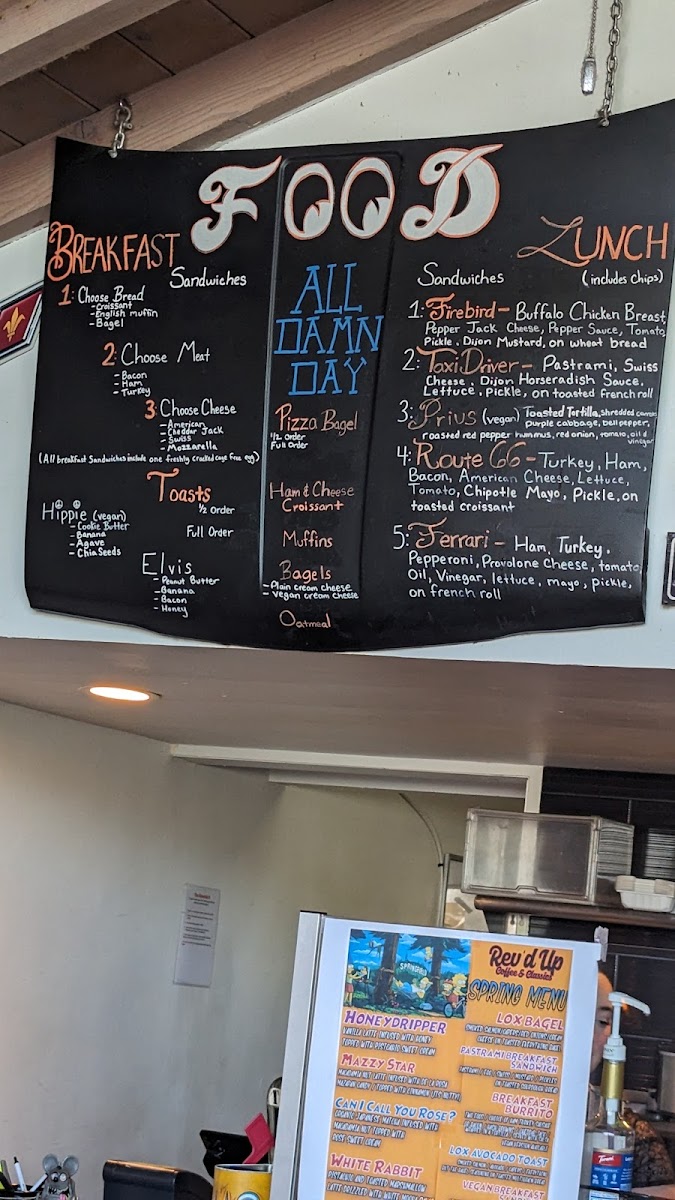 FOOD
BREAKFAST
Sandwiches
1: Choose Bread
- Croissant
- English muffin
- Bagel
2: Choose Meat
- Bacon
- Ham
- Turkey
3: Choose Cheese
- American
- Cheddar Jack
- Swiss
- Mozzarella
(All breakfast Sandwiches include one freshly cracked cage free egg)
Toasts
1/2 Order
Full Order
Hippie (vegan)
- Cookie Butter
- Banana
- Agave
- Chia Seeds
Elvis
- Peanut Butter
- Banana
- Bacon
- Honey
ALL
DAMN
DAY
Pizza Bagel
1/2 Order
Full Order
Ham & Cheese
Croissant
Muffins
Bagels
- Plain cream cheese
- Vegan cream cheese
Oatmeal
LUNCH
Sandwiches (includes chips)
1: Firebird - Buffalo Chicken Breast,
Pepper Jack Cheese, Pepper Sauce, Tomato,
Pickle, Dijon Mustard, on wheat bread
2: Taxi Driver - Pastrami, Swiss
Cheese, Dijon Horseradish Sauce,
Lettuce, Pickle, on toasted french roll
3: Prius (vegan) Toasted Tortilla, shredded carrots
purple cabbage, bell pepper,
roasted red pepper hummus, red onion, tomato, oil &
vinegar
4: Route 66 - Turkey, Ham,
Bacon, American Cheese, Lettuce,
Tomato, Chipotle Mayo, Pickle, on
toasted croissant
5: Ferrari - Ham, Turkey,
Pepperoni, Provolone Cheese, tomato,
Oil, Vinegar, lettuce, mayo, pickle,
on french roll
SPRINGFIELD
Rev'd Up
Coffee & Classics
SPRING MENU
HONEYDRIPPER
VANILLA LATTE INFUSED WITH HONEY
TOPPED WITH PISTACHIO SWEET CREAM
MAZZY STAR
MACADAMIA NUT LATTE INFUSED WITH DE LA ROSA
MAZAPAN CANDY TOPPED WITH CINNAMON
CAN I CALL YOU ROSE?
ORGANIC JAPANESE MATCHA INFUSED WITH
MACADAMIA NUT TOPPED WITH
ROSE SWEET CREAM
WHITE RABBIT
PISTACHIO AND TOASTED MARSHMALLOW
LATTE DRIZZLED WITH WHITE
LOX BAGEL
PASTRAMI BREAKFAST
SANDWICH
BREAKFAST
BURRITO
LOX AVOCADO TOAST
VEGAN BREAKFAST